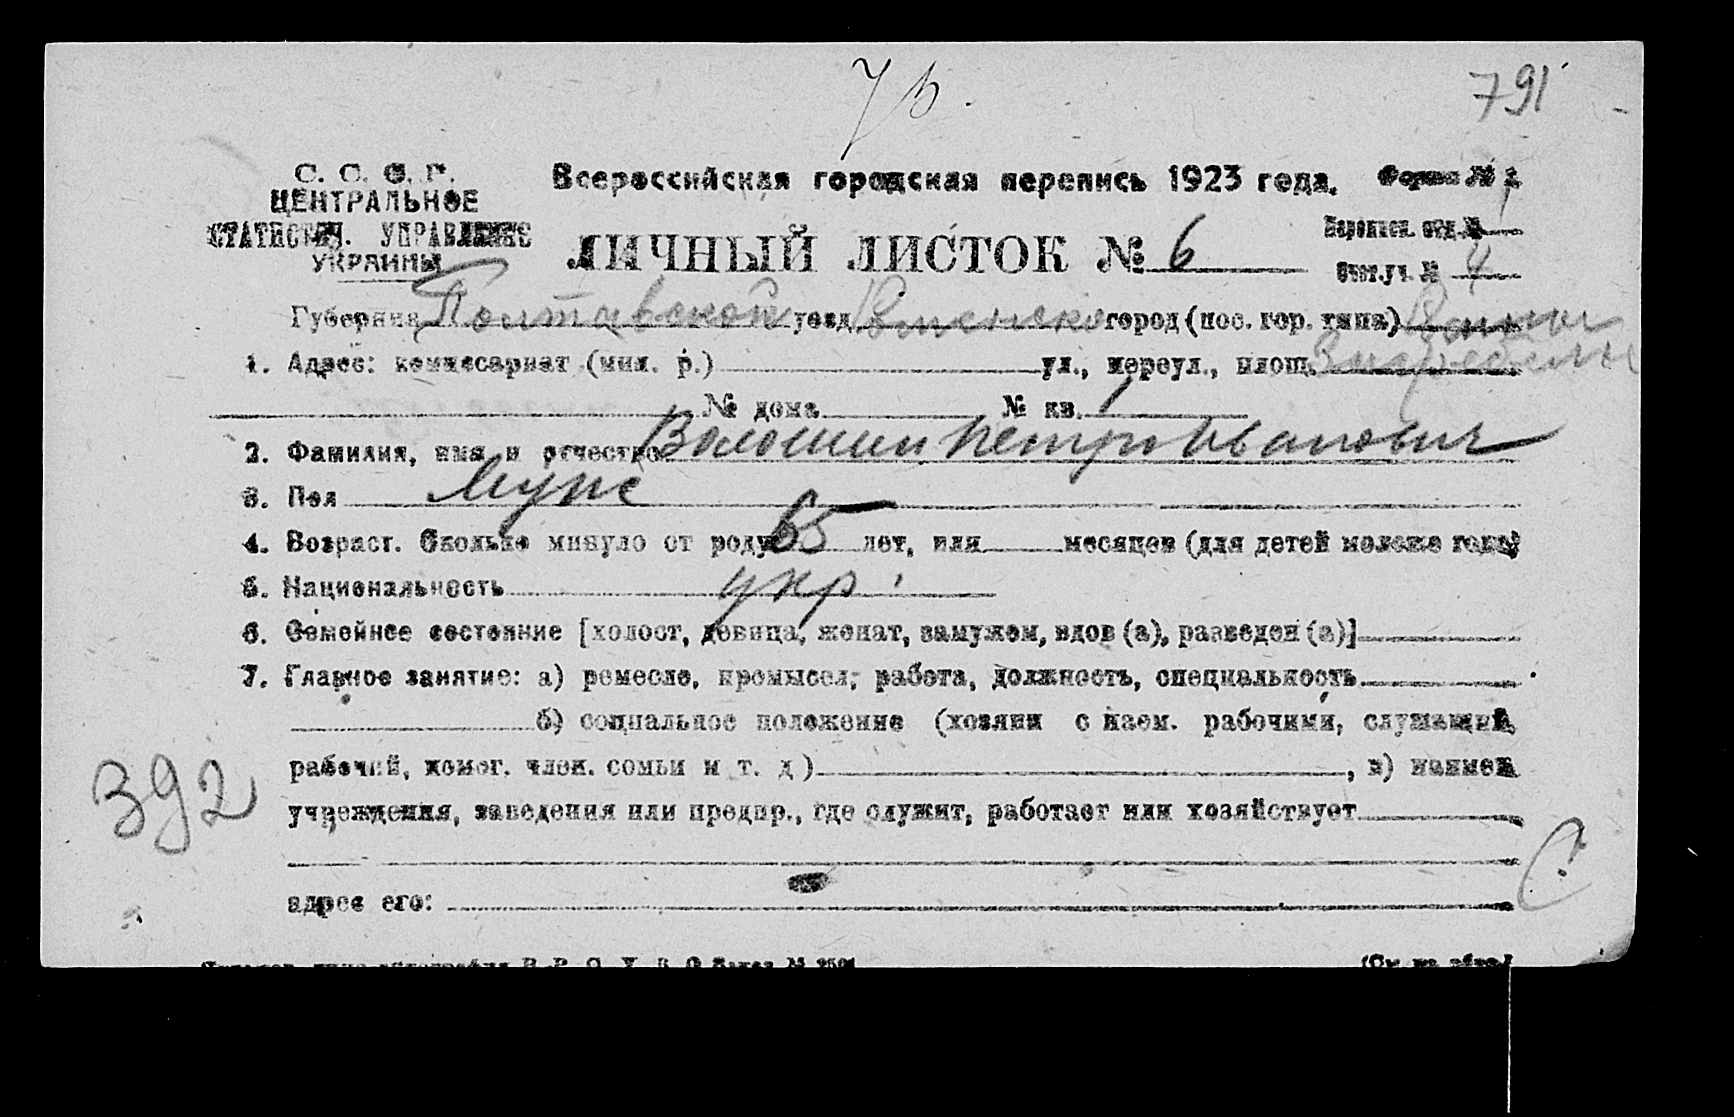 791
С. С. С. Р.
ЦЕНТРАЛЬНОЕ
СТАТИСТИЧ. УПРАВЛЕНИЕ
УКРАИНЫ
Всероссийская городская перепись 1923 года.
Форма № 1
ЛИЧНЫЙ ЛИСТОК № 6
Переписн. отд. № 1
Счет. уч. № 4
Губерния Полтавской уезд Роменско город (пос. гор. типа) Ромны
1. Адрес: комиссариат (мил. р.) ул., переул., площ.
№ дома № кв. 1
2. Фамилия, имя и отчество Волошин Петро Иванович
3. Пол Муж
4. Возраст. Сколько минуло от роду 65 лет, или месяцев (для детей моложе года)
5. Национальность укр.
6. Семейное состояние [холост, девица, женат, замужем, вдов (а), разведен (а)]
7. Главное занятие: а) ремесло, промысел, работа, должность, специальность
б) социальное положение (хозяин с наем. рабочими, служащий,
рабочий, помог. член. семьи и т. д.) , в) наимен.
учреждения, заведения или предпр., где служит, работает или хозяйствует
392
адрес его:
(См. на обор.)